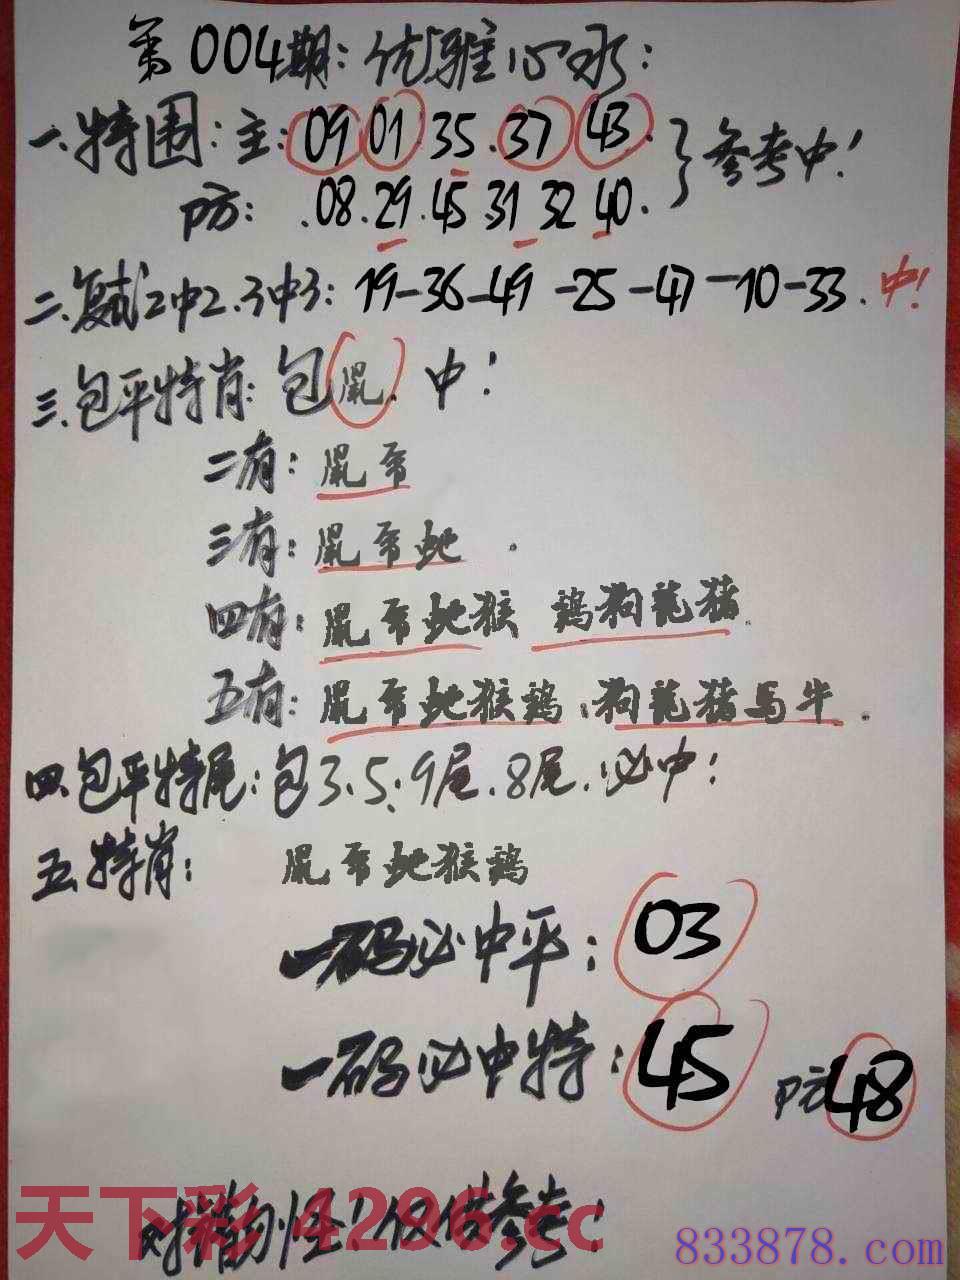 第004期:优雅心水:
一.特围:主:09 01 35.37 43.}参考中!
防:.08.29.45.31 32 40.
二.复试2中2.3中3:19-36-49-25-47-10-33.中!
三.包平特肖:包鼠.中!
二有:鼠
三有:鼠 蛇.
四有:鼠 蛇猴 鸡狗龙猪.
五有:鼠 蛇猴鸡.狗龙猪马牛.
四.包平特尾:包3.5.9尾.8尾.必中!
五.特肖:鼠 蛇猴鸡
一码必中平:03
一码必中特:45 防48
对错勿怪!仅供参考!
天下彩 4296.cc
833878.com